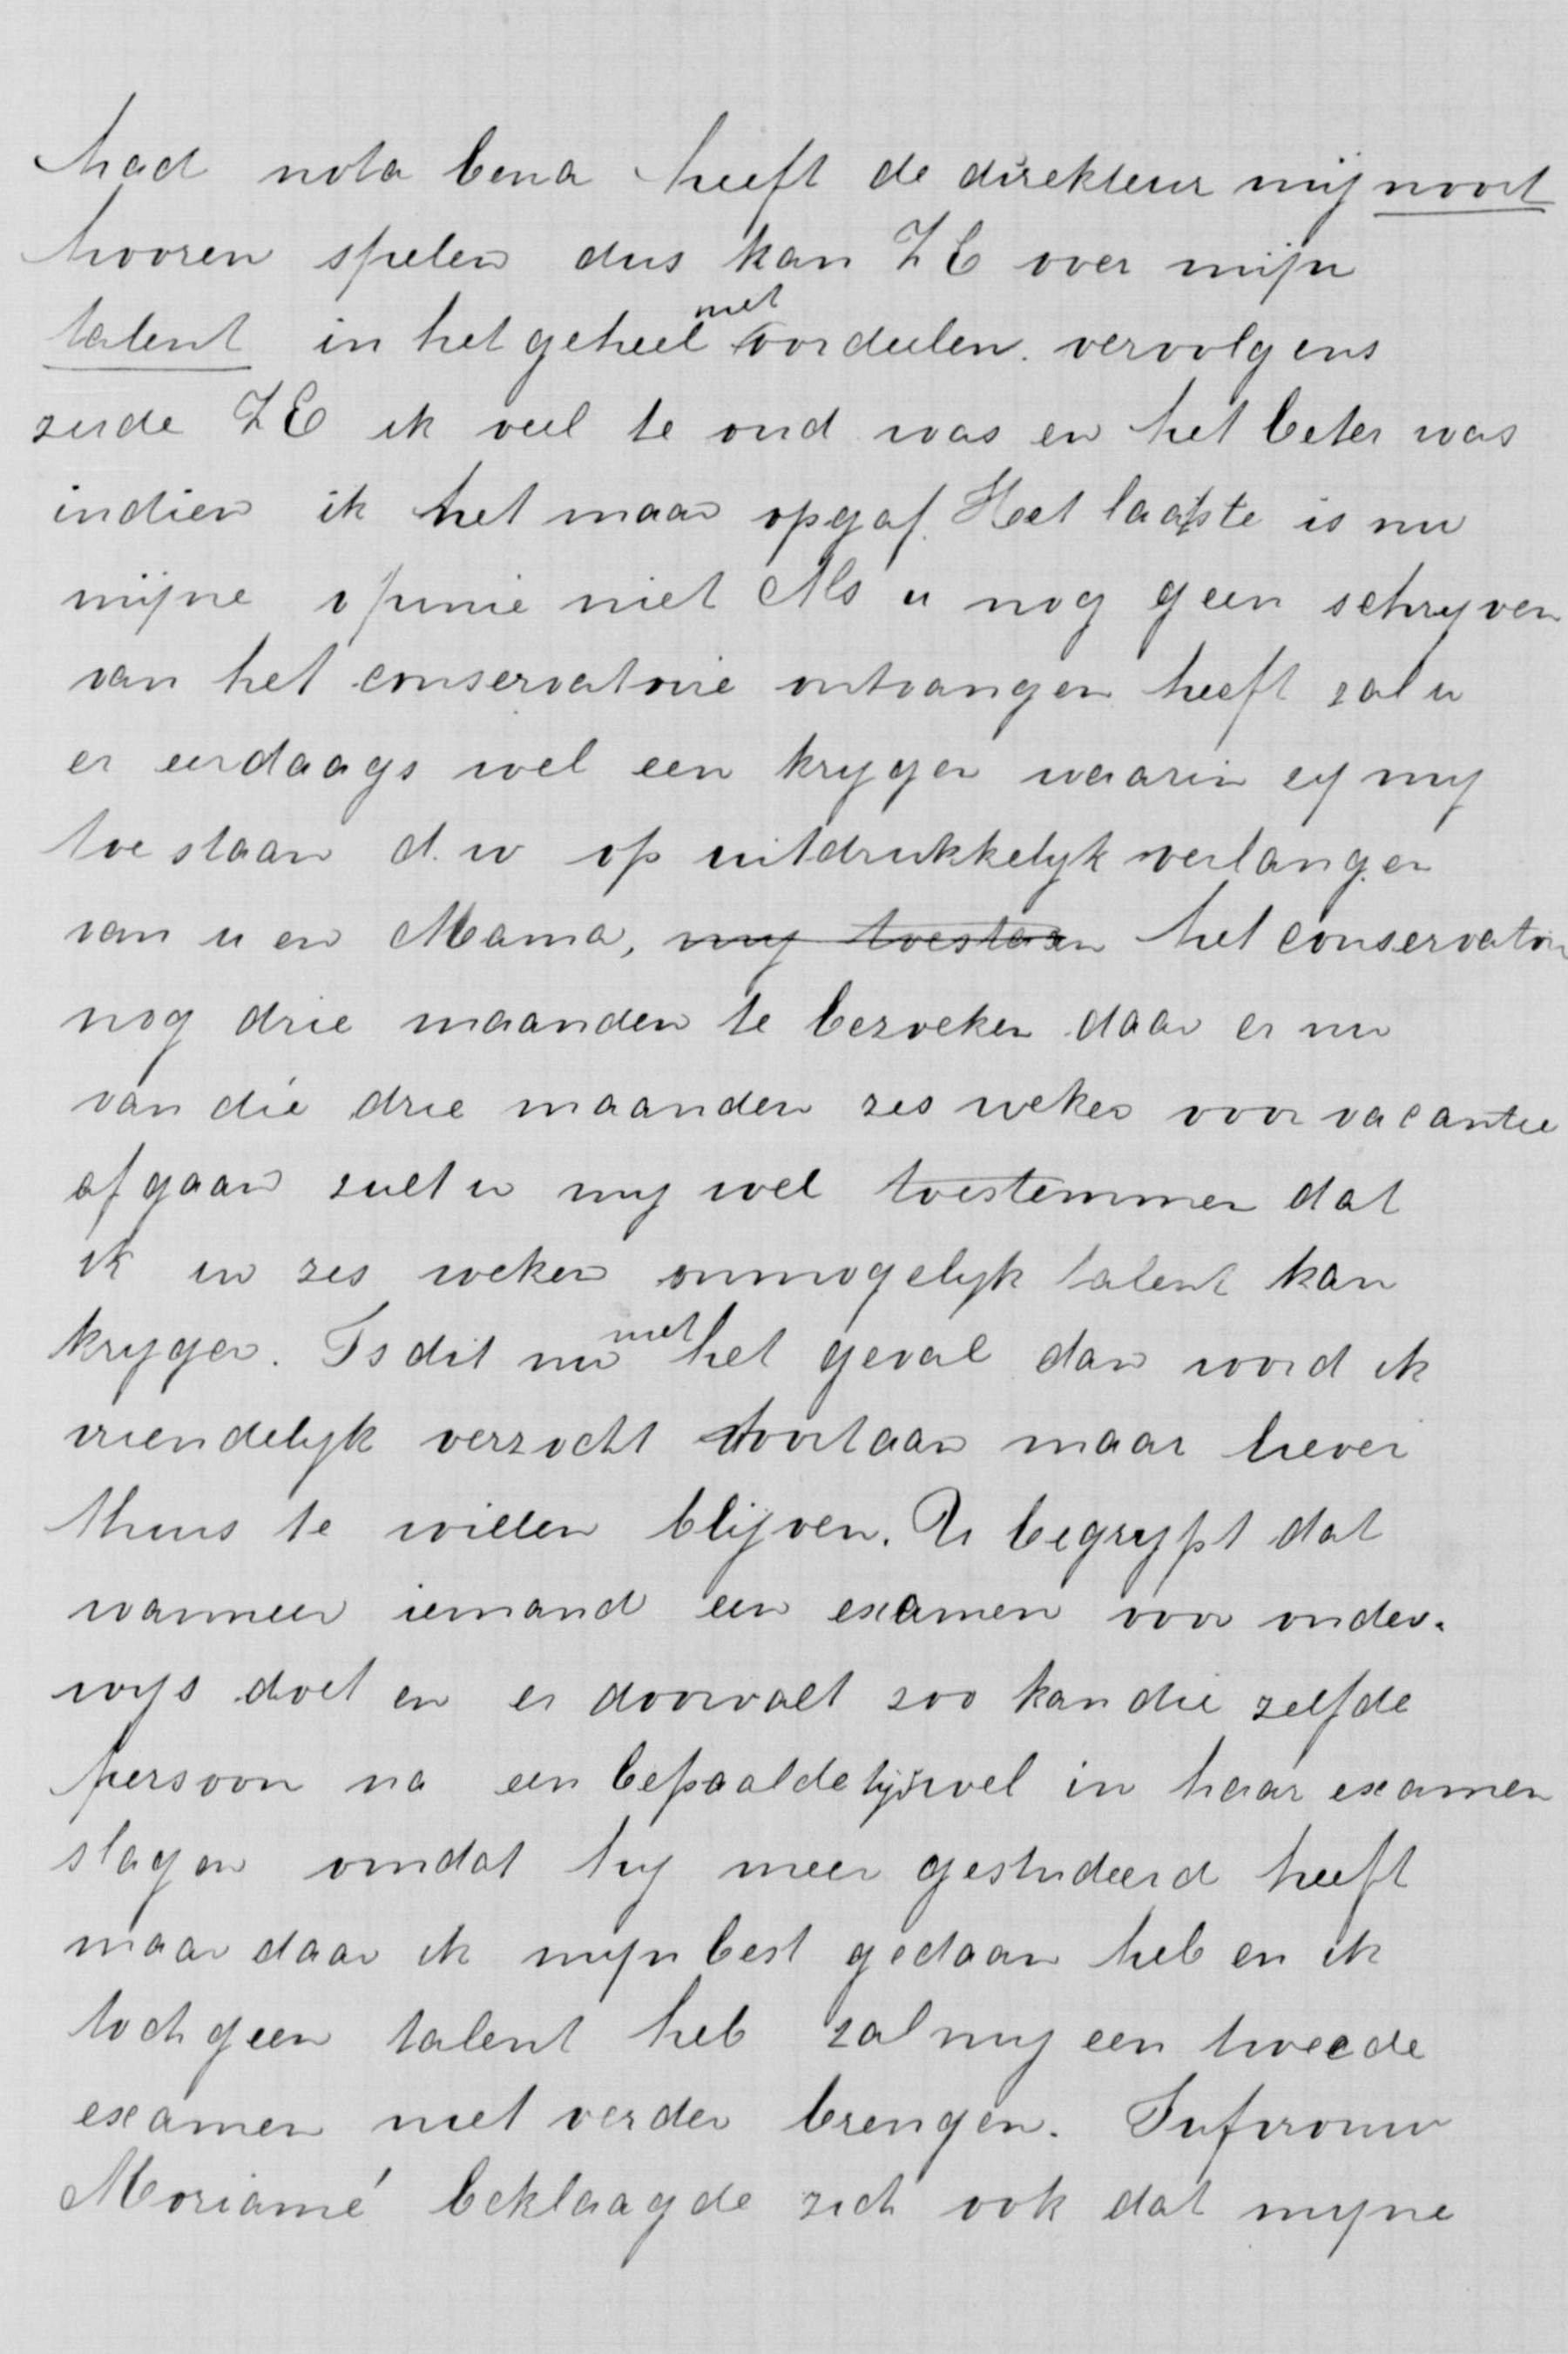 had nota bena heeft de direkteur mij nooit
hooren spelen dus kan ZE over mijn
talent in het geheel niet oordeelen. vervolgens
zeide ZE ik veel te oud was en het beter was
indien ik het maar opgaf. Het laatste is nu
mijne opinie niet Als u nog geen schryven
van het conservatoire ontvangen heeft zal u
er eerdaags wel een krygen waarin zy my
toestaan d.w op uitdrukkelyk verlangen
van u en Mama, my toestaan het conservatoir
nog drie maanden te bezoeken daar er nu
van die drie maanden zes weken voor vacantie
afgaan zult u my wel toestemmen dat
ik in zes weken onmogelyk talent kan
krygen. Is dit nu niet het geval dan word ik
vriendelyk verzocht voortaan maar liever
thuis te willen blijven. U begrypt dat
wanneer iemand een examen voor onder-
wys doet en er doorvalt zoo kan die zelfde
persoon na een bepaalde tijd wel in haar examen
slagen omdat hy meer gestudeerd heeft
maar daar ik myn best gedaan heb en ik
toch geen talent heb zal my een tweede
examen niet verder brengen. Jufvrouw
Moriamé beklaagde zich ook dat myne